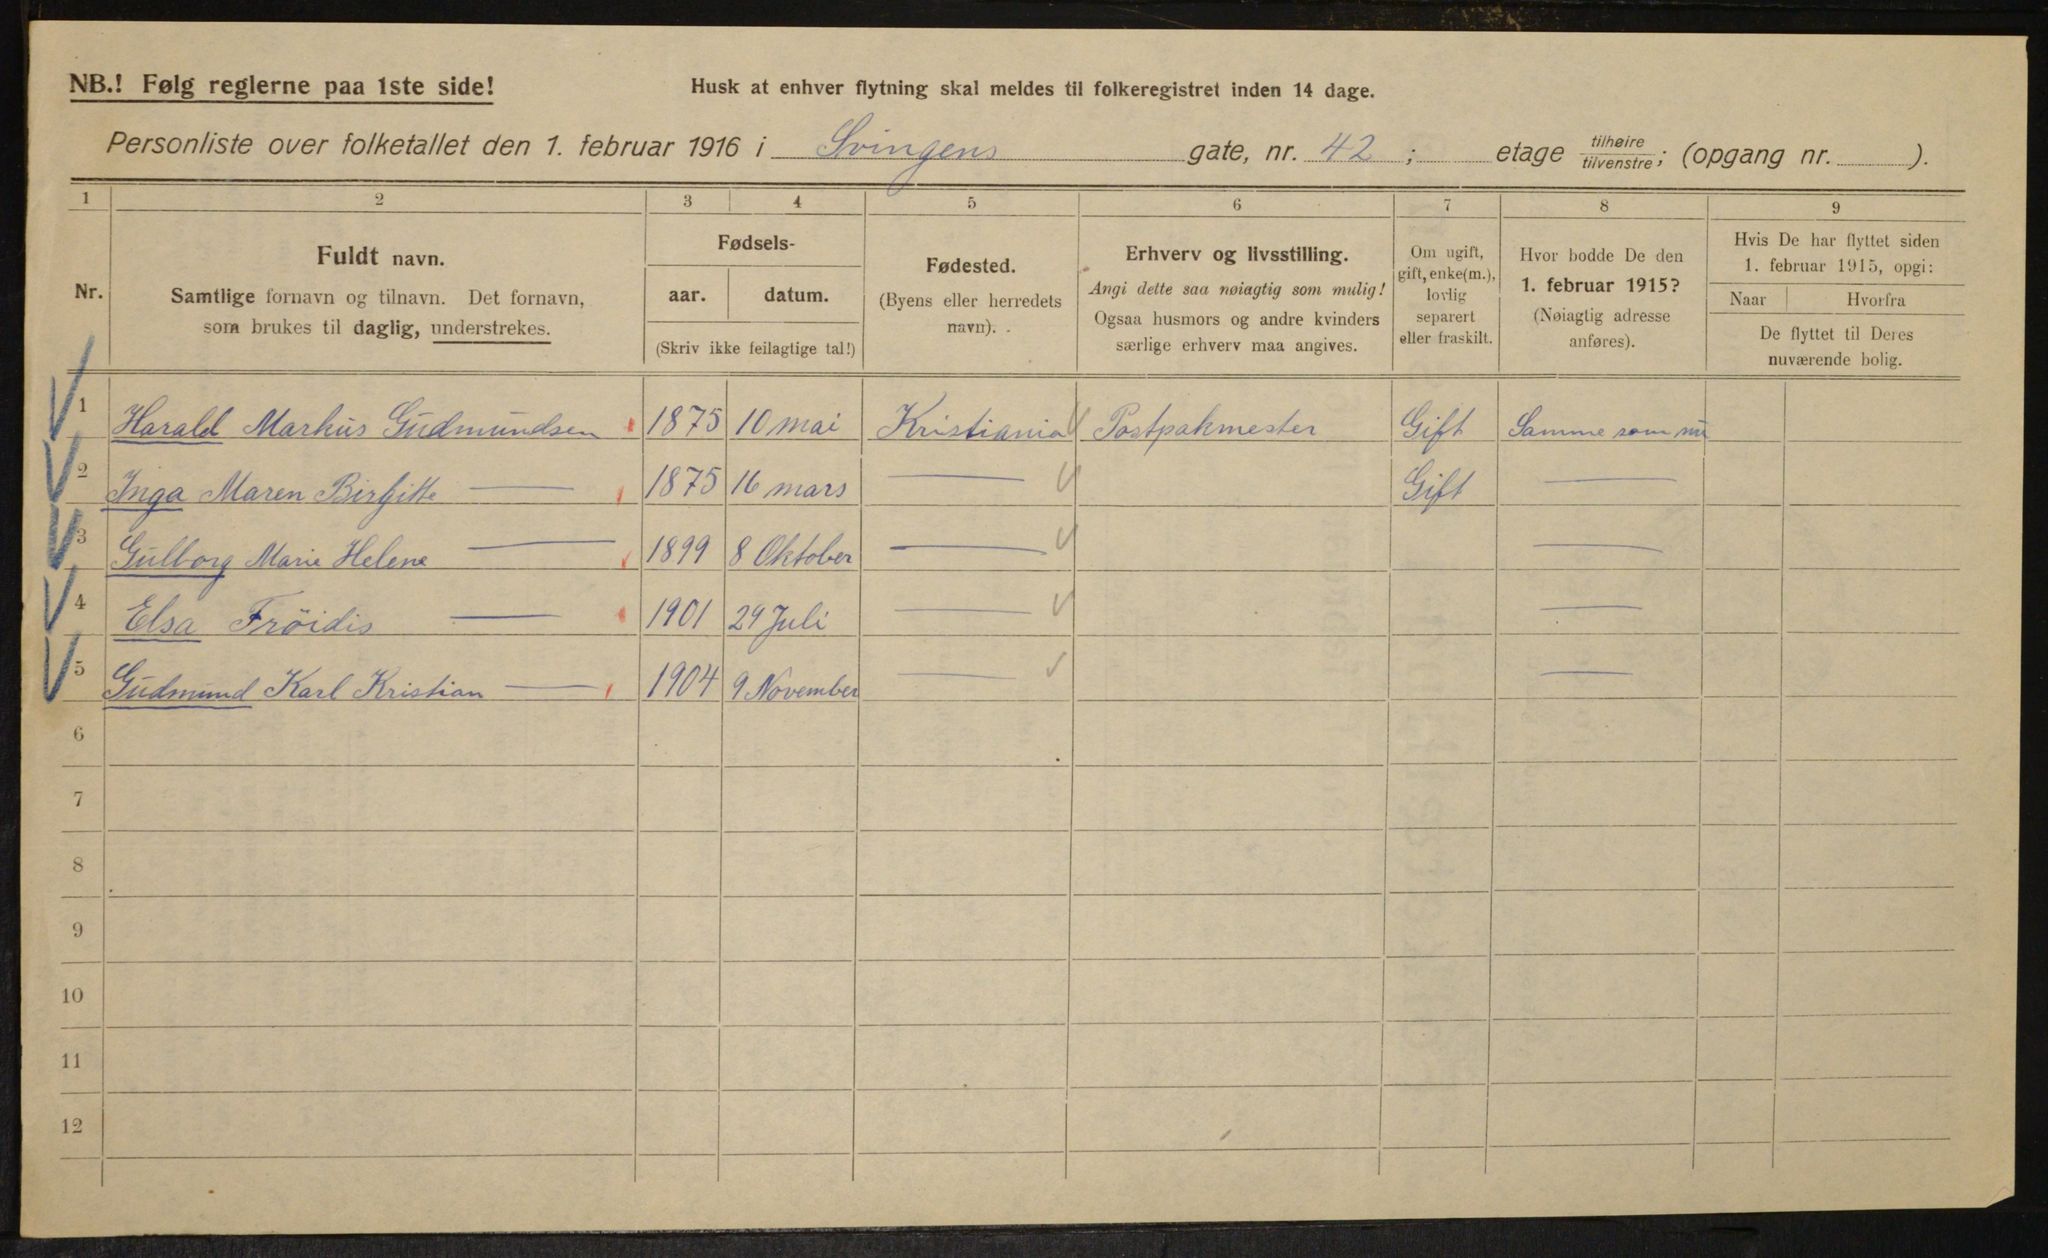 NB.! Følg reglerne paa 1ste side!
Husk at enhver flytning skal meldes til folkeregistret inden 14 dage.
Personliste over folketallet den 1. februar 1916 i Svingens gate, nr. 42 ; etage tilhøire tilvenstre; (opgang nr. ).
1 2 3 4 5 6 7 8 9
Nr.
Fuldt navn.
Samtlige fornavn og tilnavn. Det fornavn,
som brukes til daglig, understrekes.
Fødsels-
aar. datum.
(Skriv ikke feilagtige tal!)
Fødested.
(Byens eller herredets
navn).
Erhverv og livsstilling.
Angi dette saa nøiagtig som mulig!
Ogsaa husmors og andre kvinders
særlige erhverv maa angives.
Om ugift,
gift, enke(m.),
lovlig
separert
eller fraskilt.
Hvor bodde De den
1. februar 1915?
(Nøiagtig adresse
anføres).
Hvis De har flyttet siden
1. februar 1915, opgi:
Naar Hvorfra
De flyttet til Deres
nuværende bolig.
1 Harald Markus Gudmundsen 1875 10 mai Kristiania Postpakmester Gift Samme som nu
2 Inga Maren Birgitte — 1875 16 mars — Gift —
3 Gulborg Marie Helene — 1899 8 Oktober — —
4 Elsa Frøidis — 1901 29 Juli — —
5 Gudmund Karl Kristian — 1904 9 November — —
6
7
8
9
10
11
12